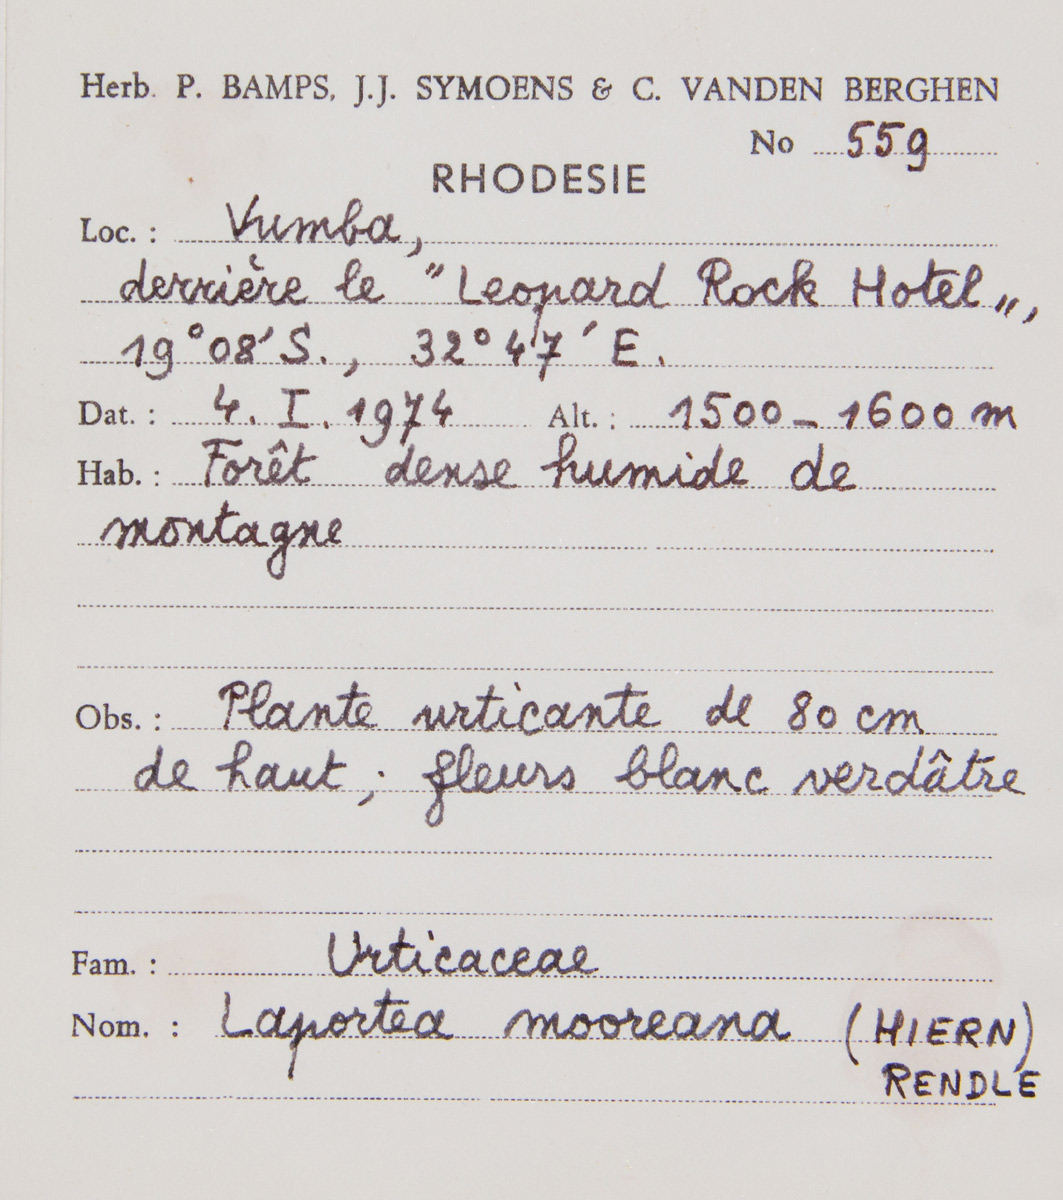 Herb. P. BAMPS, J.J. SYMOENS & C. VANDEN BERGHEN
No 559
RHODESIE
Loc. : Vumba,
derrière le "Leopard Rock Hotel",
19°08'S., 32°47'E.
Dat. : 4. I. 1974 Alt. : 1500 - 1600 m
Hab. : Forêt dense humide de
montagne
Obs. : Plante urticante de 80 cm
de haut ; fleurs blanc verdâtre
Fam. : Urticaceae
Nom. : Laportea mooreana (HIERN)
RENDLE